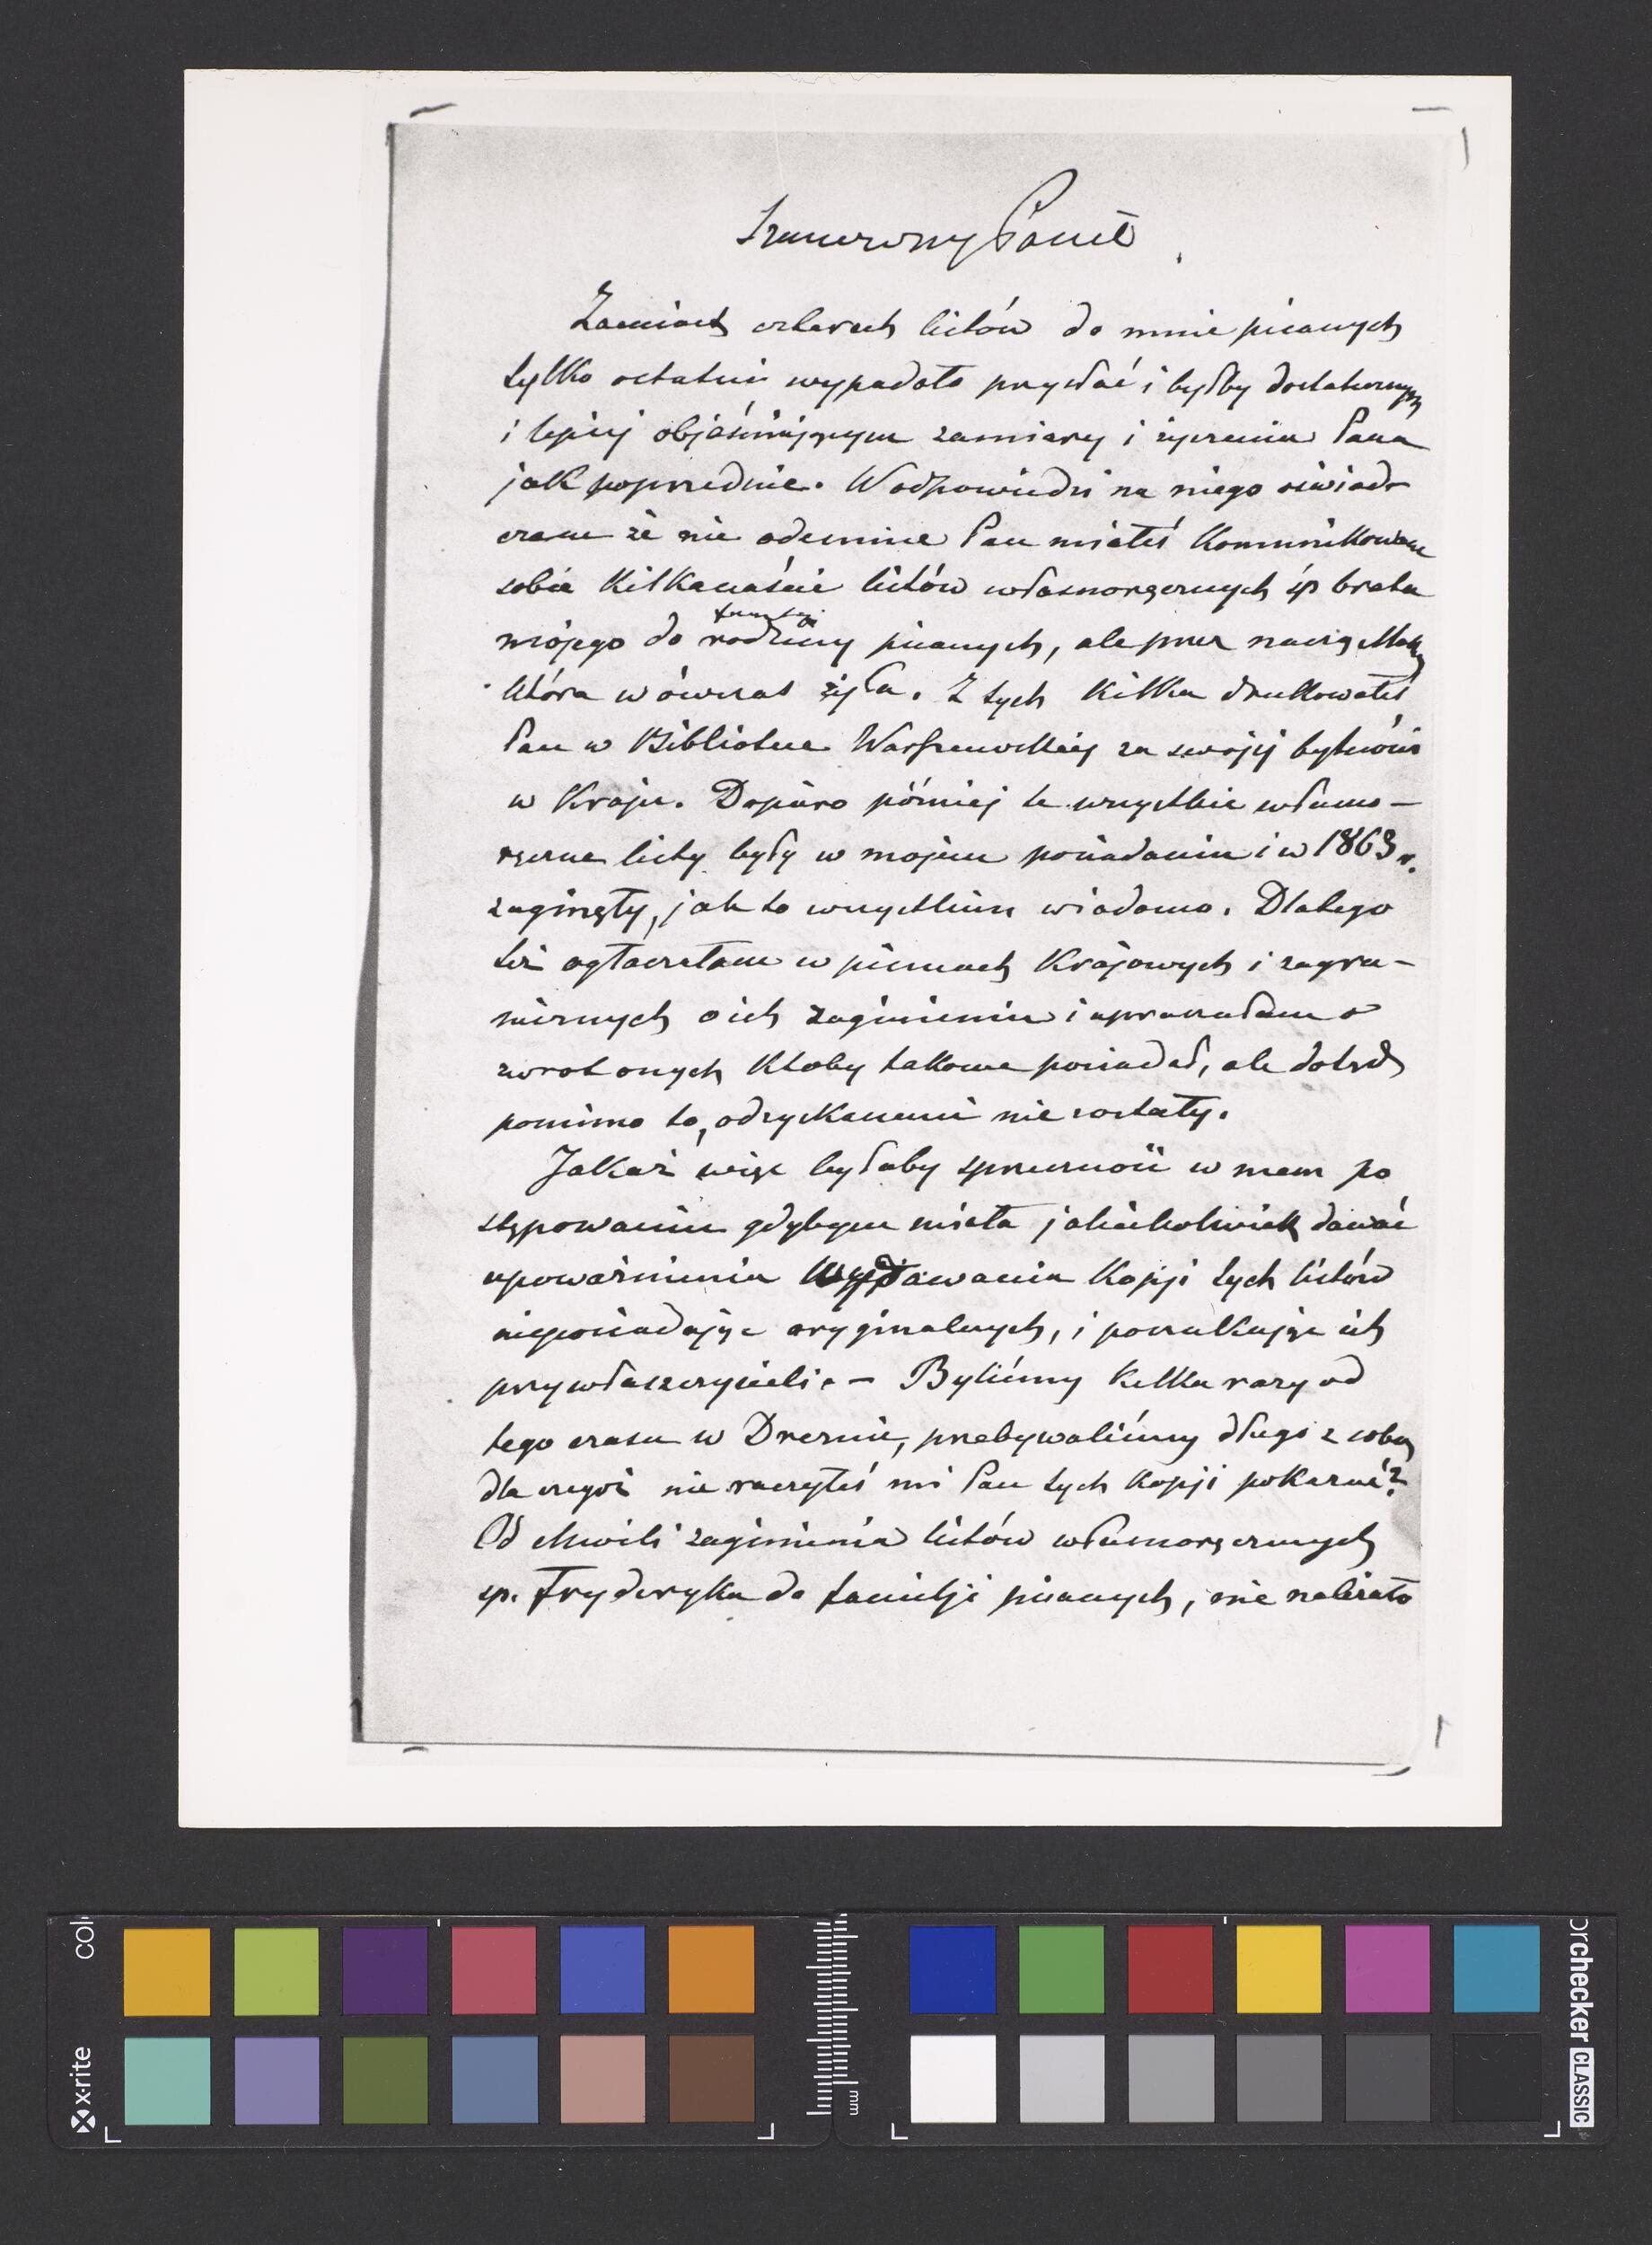 Szanowny Panie
Zamiast czterech listów do mnie pisanych
tylko ostatni wypadało przysłać i byłby dostatecznym
i lepiej objaśniającym zamiary i życzenia Pana
jak poprzednie. W odpowiedzi na niego oświad-
czam że nie odemnie Pan miałeś komunikowane
sobie kilkanaście listów własnoręcznych śp brata
mojego do rodziny pisanych, ale przez naszą Matkę
familji
która wówczas żyła. Z tych kilka drukowałeś
Pan w Bibliotece Warszawskiej za swojej bytności
w Kraju. Dopiero później te wszystkie własno-
ręczne listy były w mojem posiadaniu i w 1863 r.
zaginęły, jak to wszystkim wiadomo. Dlatego
też ogłaszałam w pismach krajowych i zagra-
nicznych o ich zaginieniu i upraszałam o
zwrot onych ktoby takowe posiadał, ale dotąd
pomimo to, odzyskanemi nie zostały.
Jakaż więc byłaby sprzeczność w mem po
stępowaniu gdybym miała jakiekolwiek dawać
upoważnienia wydawania Kopji tych listów
nieposiadając oryginalnych, i poszukując ich
przywłaszczycieli. – Byliśmy kilka razy od
tego czasu w Dreznie, przebywaliśmy długo z sobą
dla czegoż nie raczyłeś mi Pan tych kopji pokazać?
Od chwili zaginienia listów własnoręcznych
śp. Fryderyka do familji pisanych, nie należało
x-rite
col
mm
orchecker CLASSIC